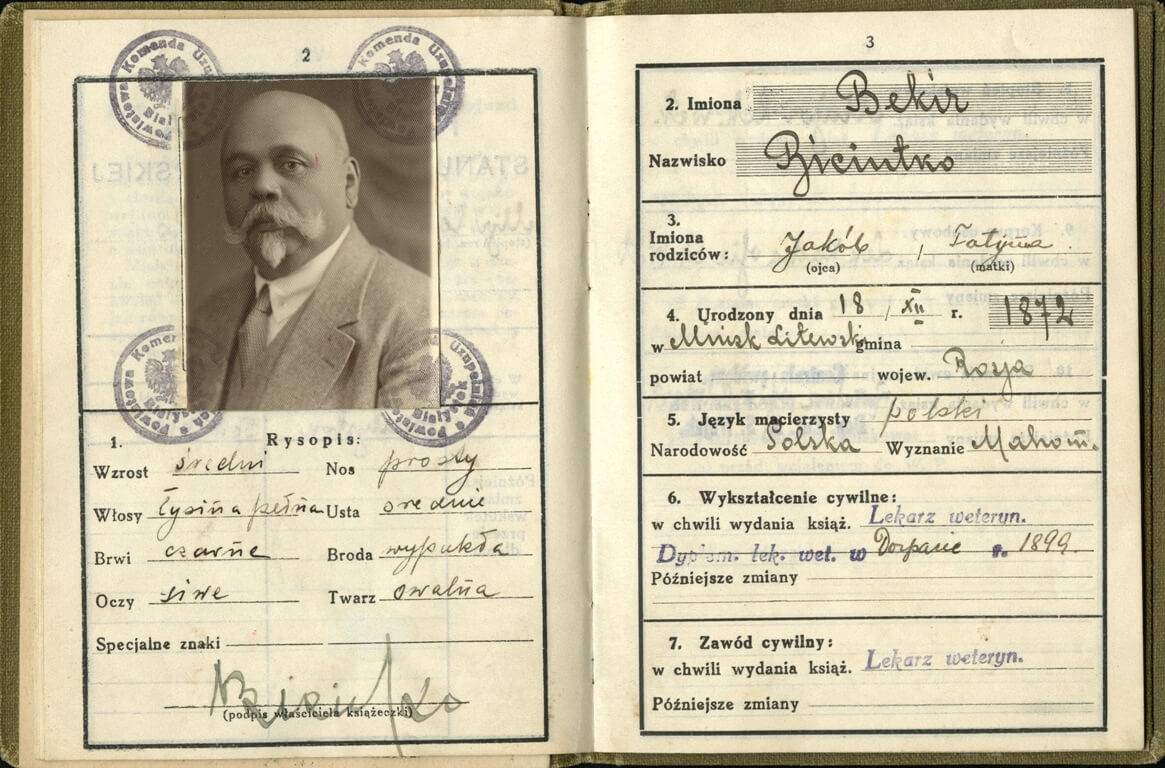 2
Komenda Uzu
Powiatowa
Biał
Komenda Uzupełn
1.
Rysopis:
Wzrost średni Nos prosty
Włosy łysina pełna Usta średnie
Brwi czarne Broda wypukła
Oczy siwe Twarz owalna
Specjalne znaki
(podpis właściciela książeczki)
Powiatowa Komen
Uzupełnień
Białystok
3
2. Imiona Bekir
Nazwisko
3.
Imiona
rodziców: Jakób , Fatyma
(ojca) (matki)
4. Urodzony dnia 18 / XII r. 1872
w Mińsk Litewski gmina
powiat wojew. Rosja
5. Język macierzysty polski
Narodowość Polska Wyznanie Mahom.
6. Wykształcenie cywilne:
w chwili wydania książ. Lekarz weteryn.
Dyplom. lek. wet. w Dorpacie r. 1899.
Późniejsze zmiany
7. Zawód cywilny:
w chwili wydania książ. Lekarz weteryn.
Późniejsze zmiany